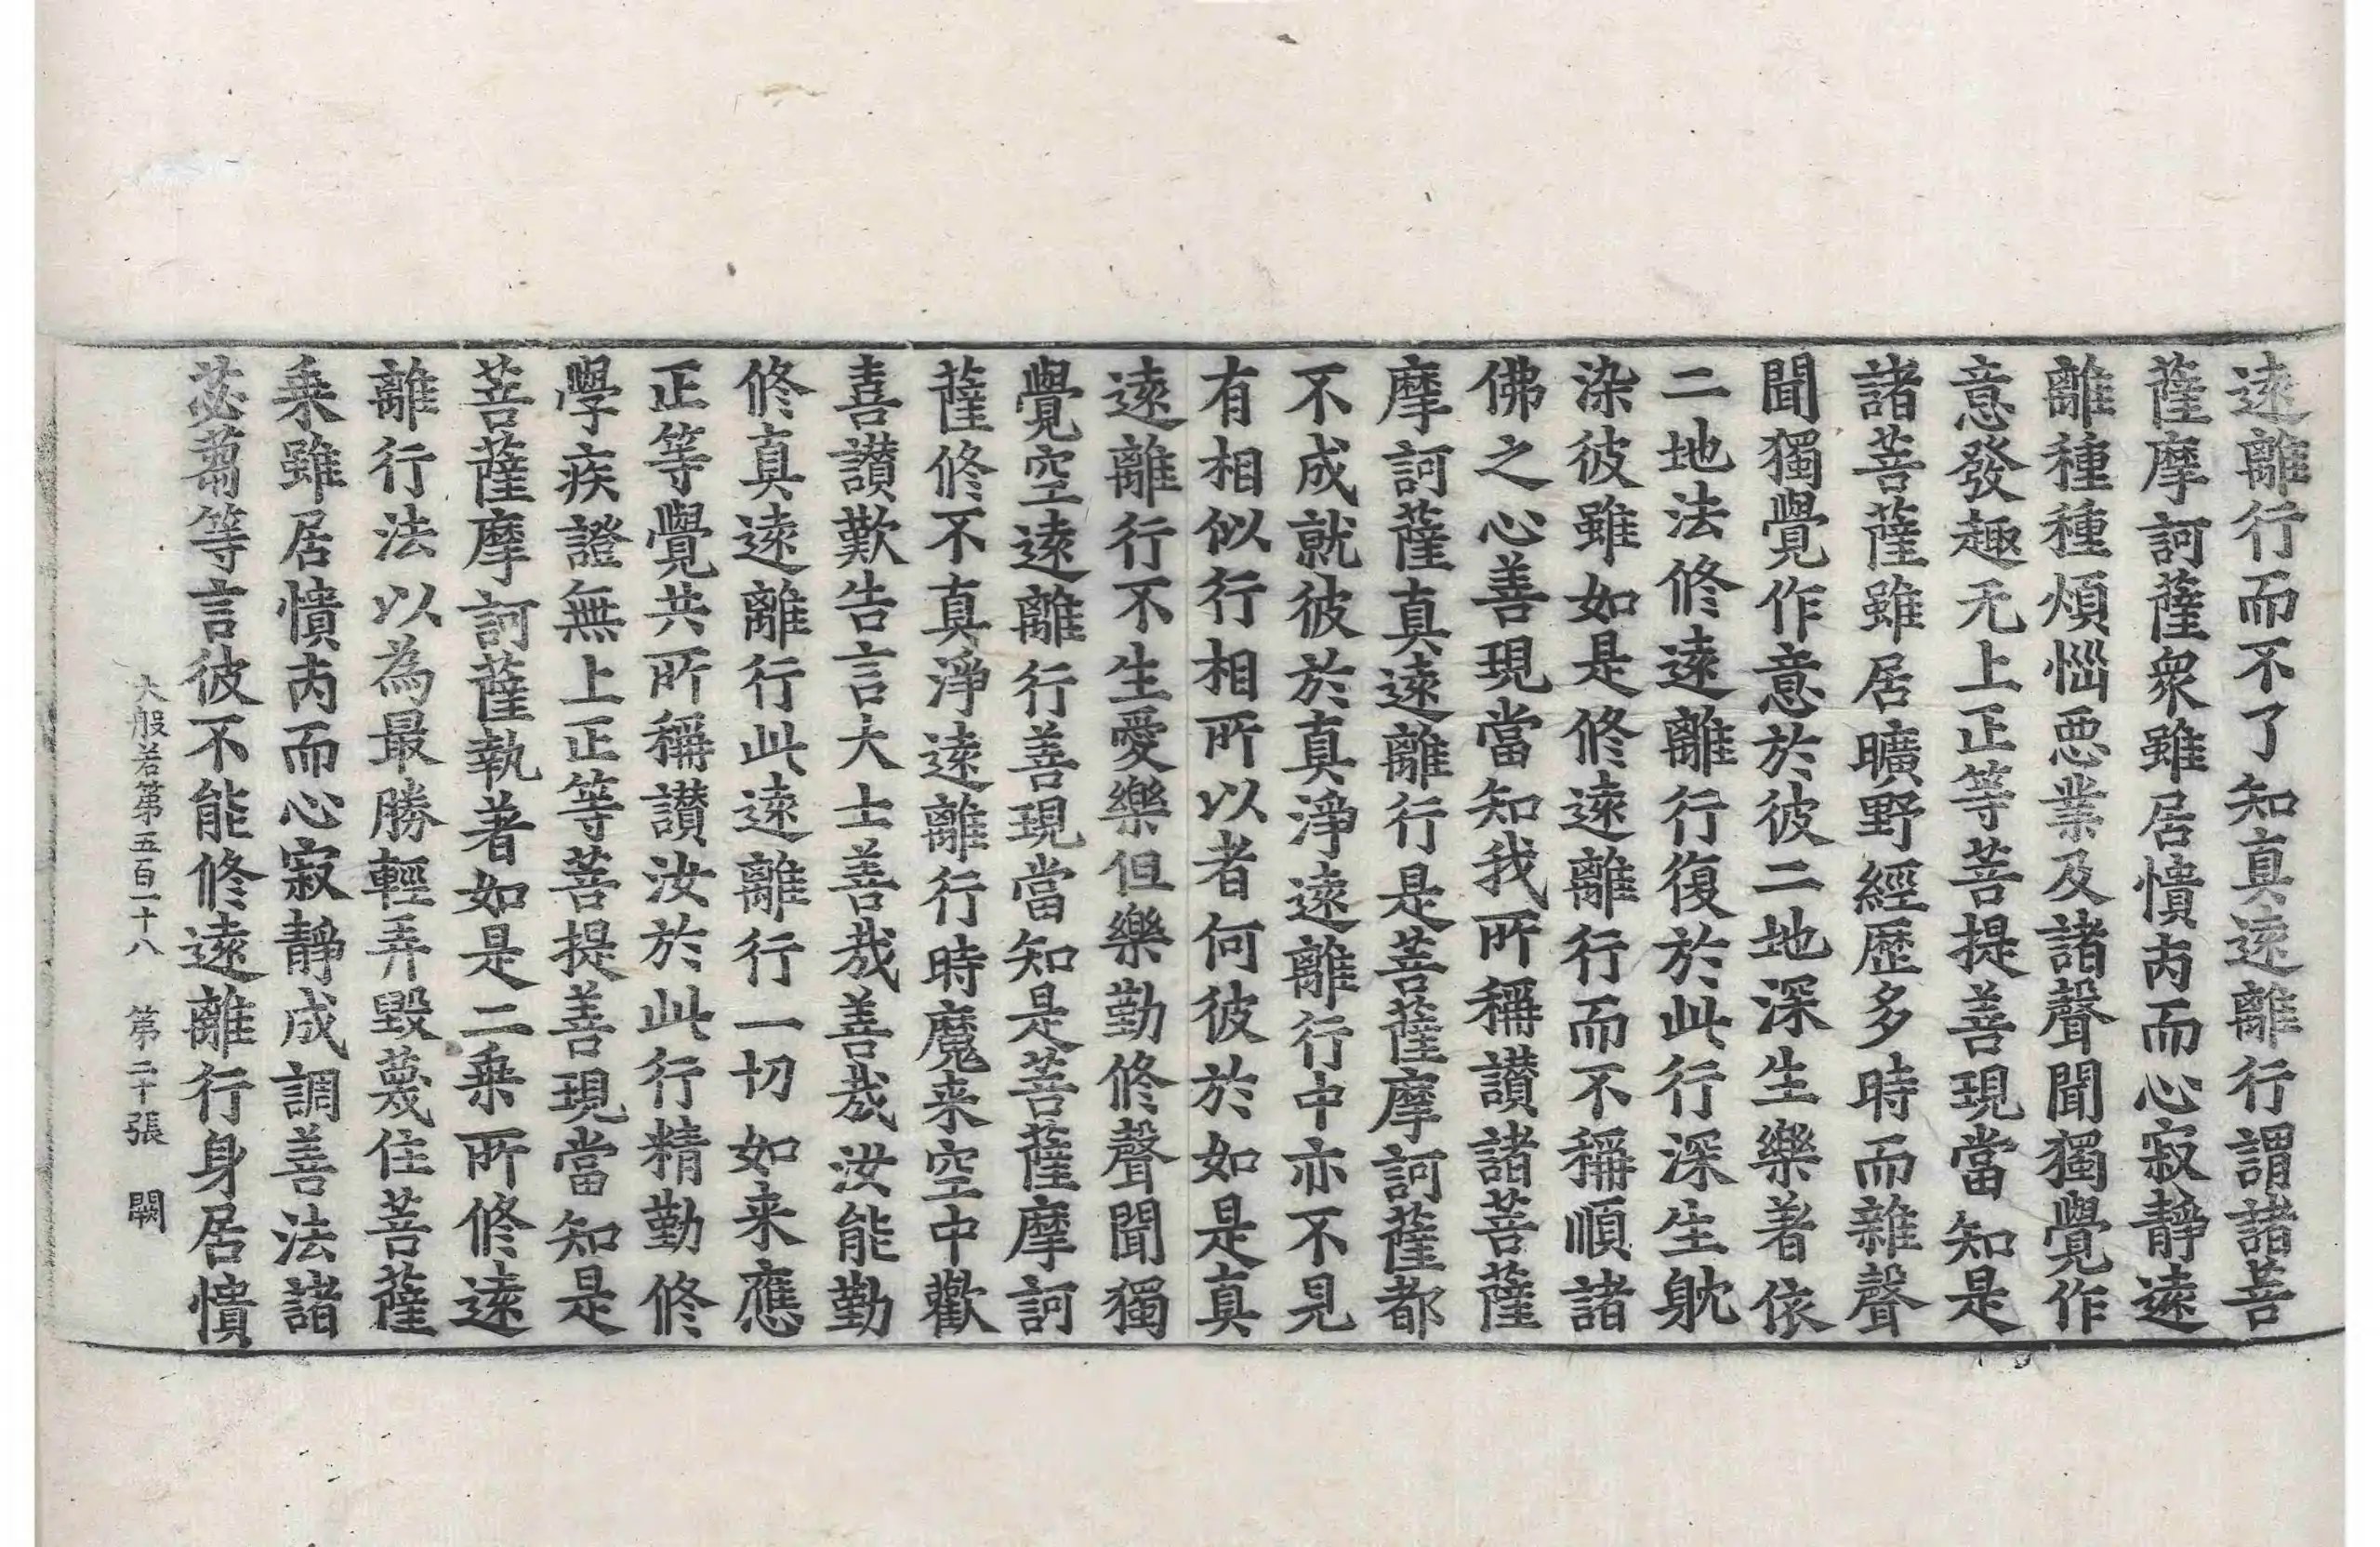 逺離行而不了知真逺離行謂諸菩
薩摩訶薩衆雖居憒丙而心寂靜逺
離種種煩惱惡業及諸聲聞獨覺作
意發趣无上正等菩提善現當知是
諸菩薩雖居曠野經歷多時而雜聲
聞獨覺作意於彼二地深生樂著依
二地法修逺離行復於此行深生躭
染彼雖如是修逺離行而不稱順諸
佛之心善現當知我所稱讃諸菩薩
摩訶薩真逺離行是菩薩摩訶薩都
不成就彼於真淨逺離行中亦不見
有相似行相所以者何彼於如是真
逺離行不生愛樂但樂勤修聲聞獨
覺空逺離行善現當知是菩薩摩訶
薩修不真淨逺離行時魔来空中歡
喜讃歎告言大士善哉善哉汝能勤
修真逺離行此逺離行一切如来應
正等覺共所稱讃汝於此行精勤修
學疾證無上正等菩提善現當知是
菩薩摩訶薩執著如是二乗所修逺
離行法以為最勝輕弄毀蔑住菩薩
乗雖居憒丙而心寂靜成調善法諸
苾蒭等言彼不能修逺離行身居憒
大般若第五百一十八　第二十張　闕